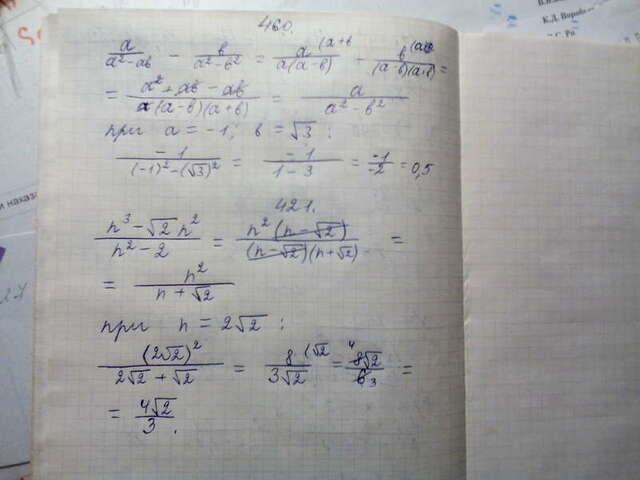 К.Д. Воробье
460.
a/(a²-ab) - b/(a²-b²) = a (a+b / a(a-b) - b (ab / (a-b)(a+b) =
= (a²+ab-ab)/(a(a-b)(a+b)) = a/(a²-b²)
при a = -1; b = √3 :
-1/((-1)²-(√3)²) = -1/(1-3) = -1/-2 = 0,5
421.
(n³-√2 n²)/(n²-2) = n²(n-√2)/((n-√2)(n+√2)) =
= n²/(n+√2)
при n = 2√2 :
(2√2)²/(2√2+√2) = 8 (√2 / 3√2 = 4 8√2/6 3 =
= 4√2/3.
и наказа